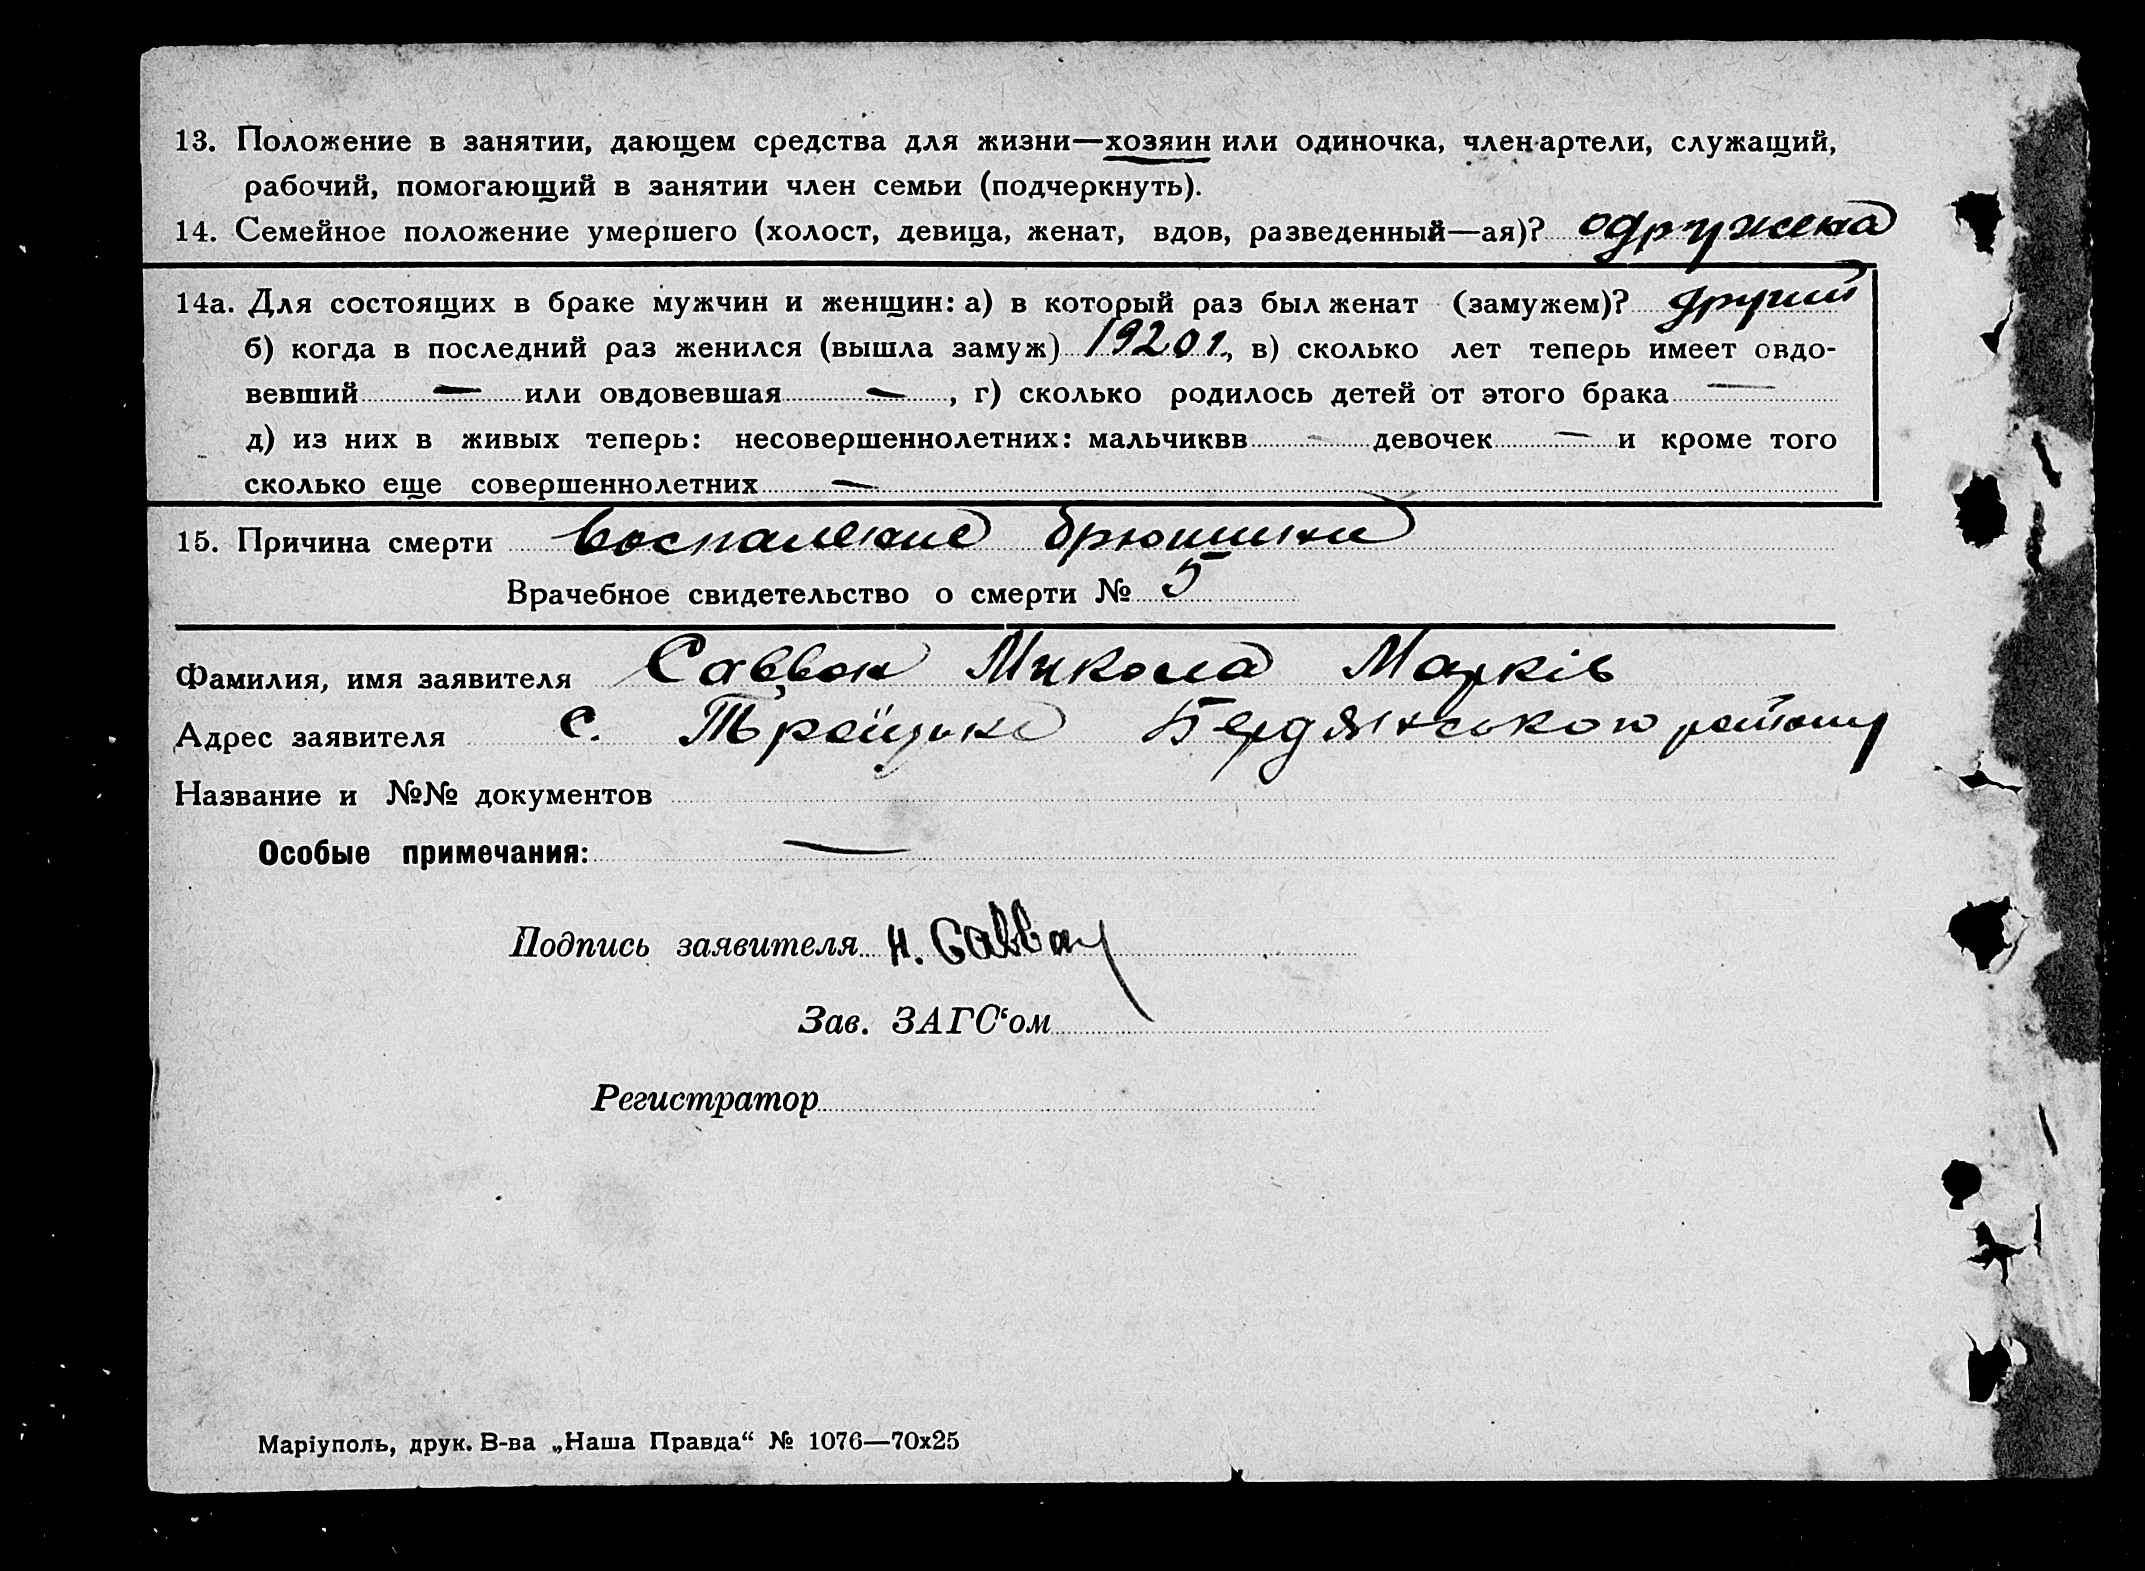 13. Положение в занятии, дающем средства для жизни—хозяин или одиночка, член артели, служащий,
рабочий, помогающий в занятии член семьи (подчеркнуть).
14. Семейное положение умершего (холост, девица, женат, вдов, разведенный—ая)? одружена
14а. Для состоящих в браке мужчин и женщин: а) в который раз был женат (замужем)? другий
б) когда в последний раз женился (вышла замуж) 1920 г., в) сколько лет теперь имеет овдо-
вевший — или овдовевшая —, г) сколько родилось детей от этого брака —
д) из них в живых теперь: несовершеннолетних: мальчиквв — девочек — и кроме того
сколько еще совершеннолетних —
15. Причина смерти воспаление брюшини
Врачебное свидетельство о смерти № 5
Фамилия, имя заявителя Саввон Микола Марків
Адрес заявителя с. Троїцьке Бердянського району
Название и №№ документов
Особые примечания: —
Подпись заявителя Н. Саввон
Зав. ЗАГС‘ом
Регистратор
Маріуполь, друк. В-ва „Наша Правда“ № 1076—70х25